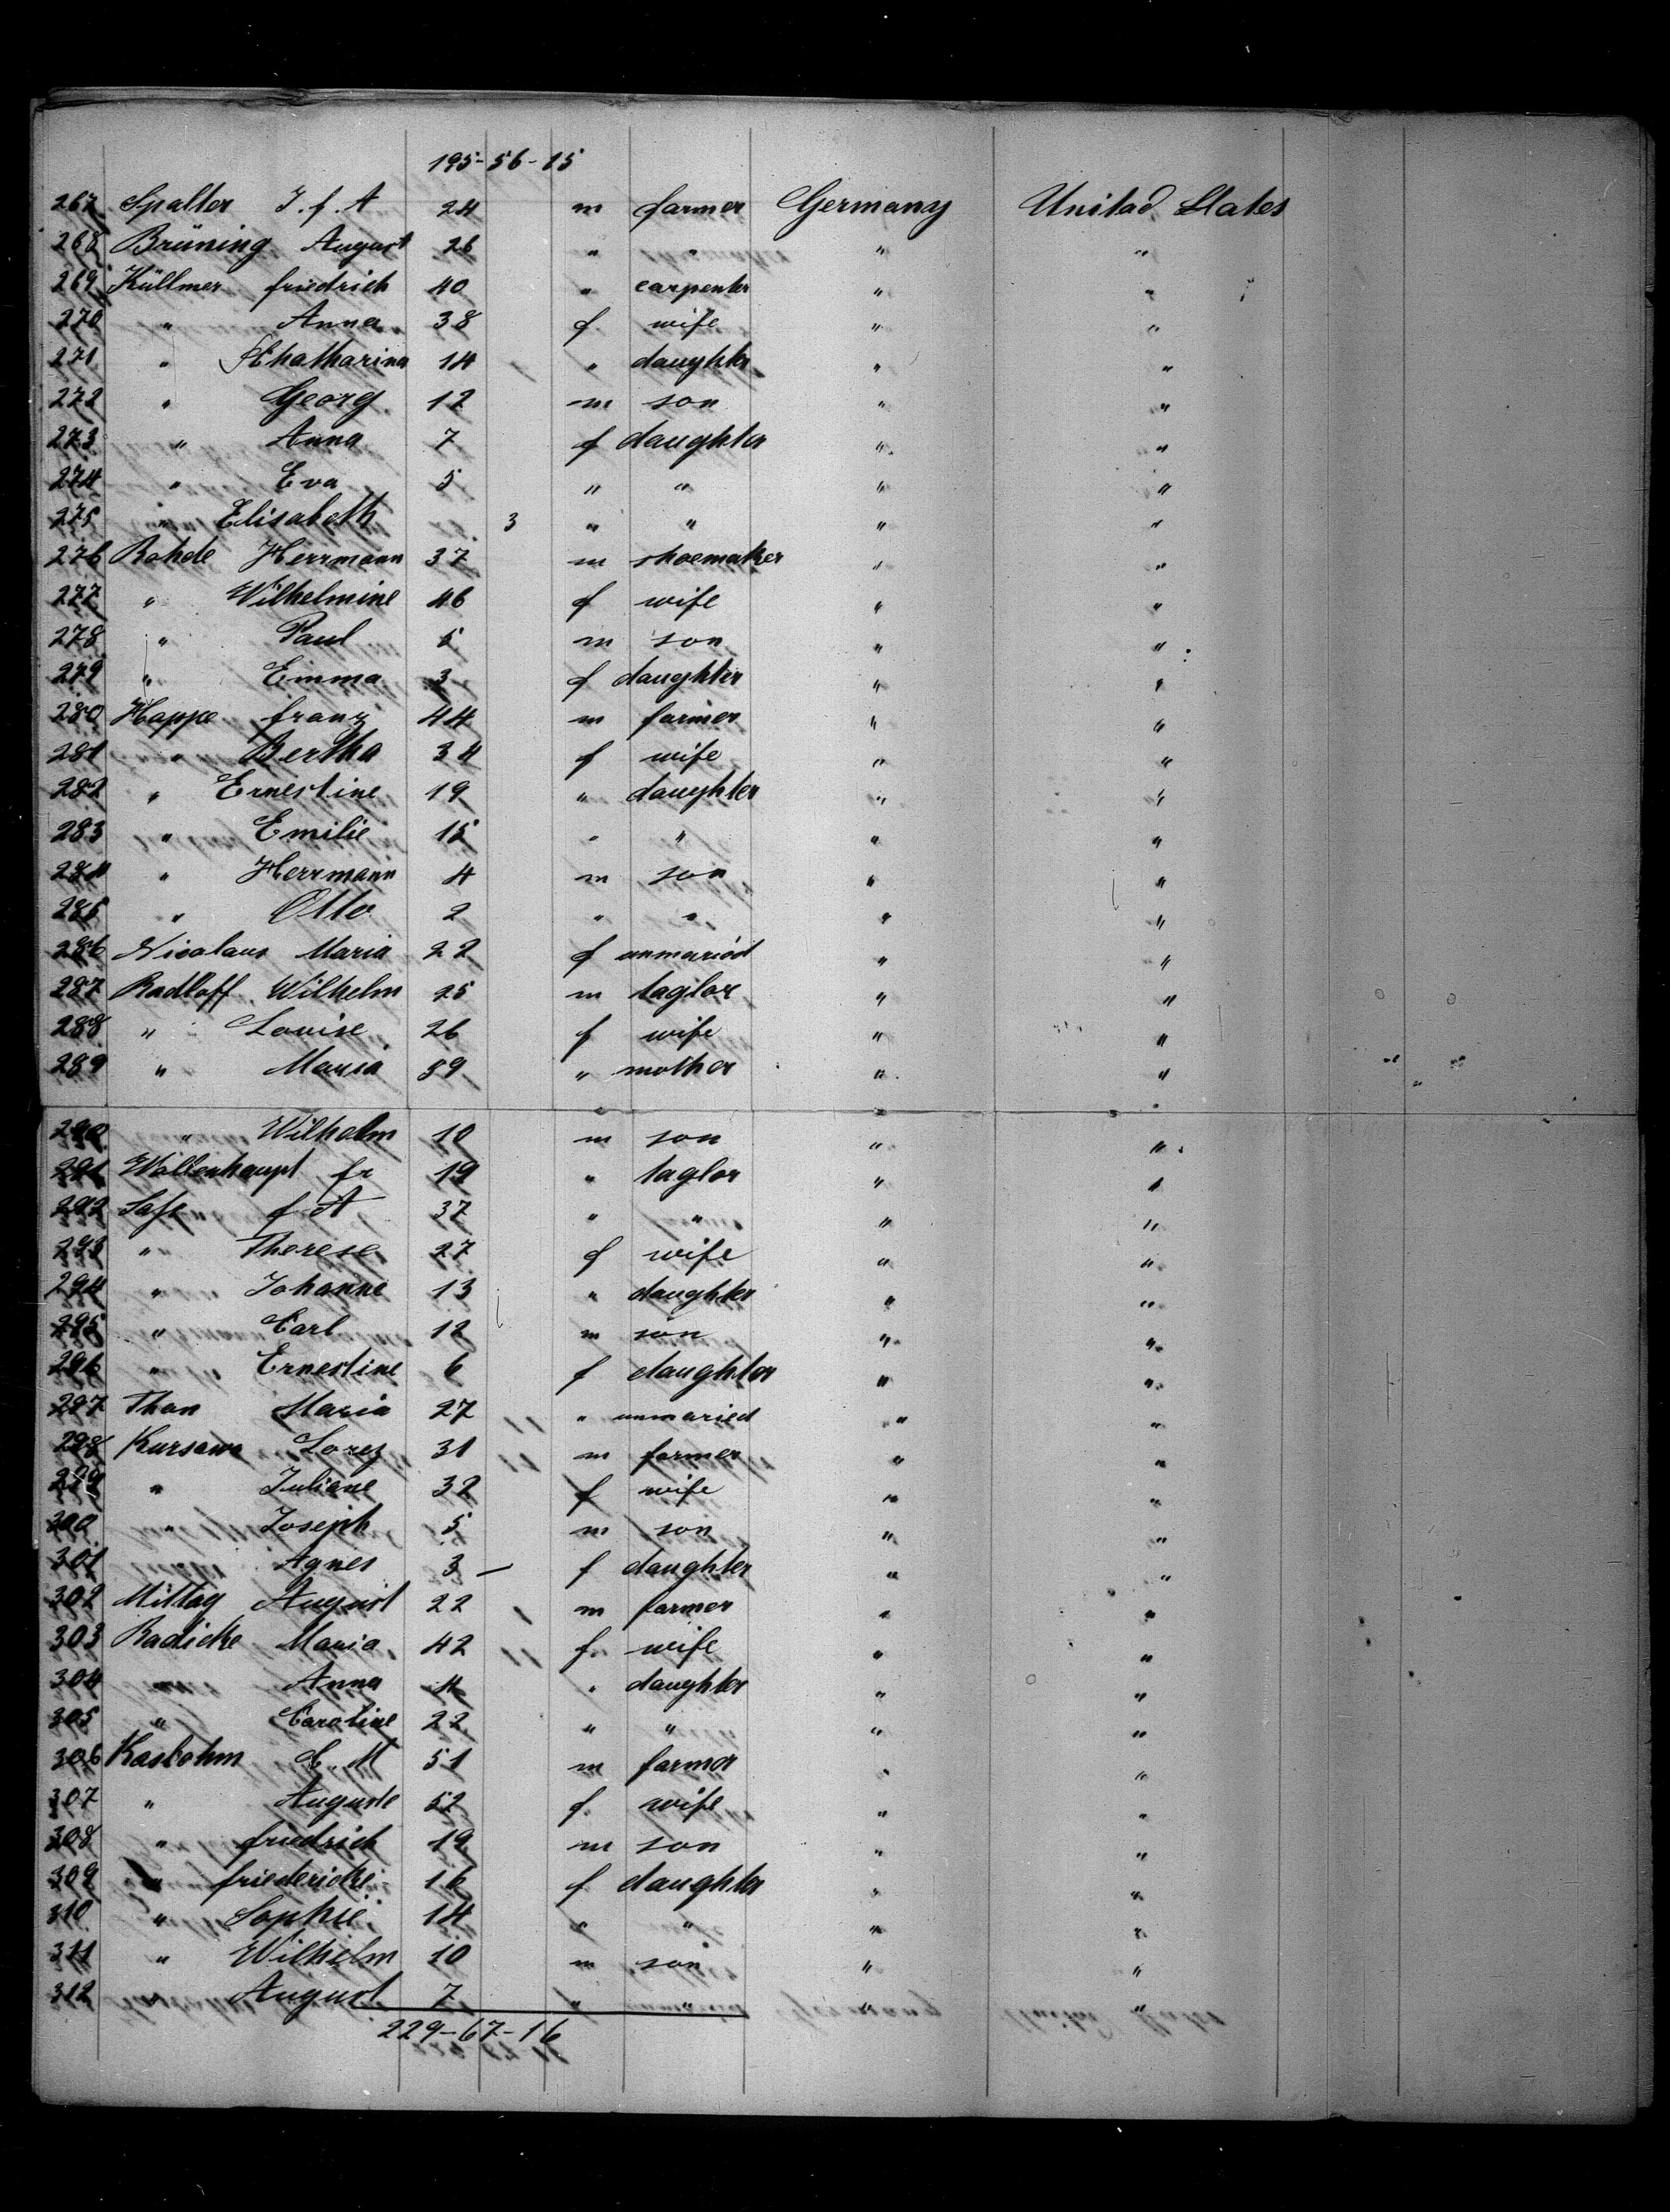 195-56-15
267 Spalter J. f. A 24 m farmer Germany United States
268 Brüning August 26 " " " "
269 Küllmer friedrich 40 " carpenter " "
270 " Anna 38 f wife " "
271 " Chatharina 14 " daughter " "
272 " Georg 12 m son " "
273 " Anna 7 f daughter " "
274 " Eva 5 " " " "
275 " Elisabeth 3 " " " "
276 Rohde Herrmann 37 m shoemaker " "
277 " Wilhelmine 46 f wife " "
278 " Paul 5 m son " "
279 " Emma 3 f daughter " "
280 Hoppe franz 44 m farmer " "
281 " Bertha 34 f wife " "
282 " Ernestine 19 " daughter " "
283 " Emilie 15 " " " "
284 " Herrmann 4 m son " "
285 " Otto 2 " " " "
286 Nicolaus Maria 22 f unmaried " "
287 Radloff Wilhelm 25 m taglor " "
288 " Louise 26 f wife " "
289 " Maria 59 " mother " "
290 " Wilhelm 10 m son " "
291 Wollenhaupt fr 19 " taglor " "
292 Safe f A 37 " " " "
293 " Therese 27 f wife " "
294 " Johanne 13 " daughter " "
295 " Carl 12 m son " "
296 " Ernestine 6 f daughter " "
297 Thon Maria 27 " unmaried " "
298 Kursawa Lorez 31 m farmer " "
299 " Juliane 32 f wife " "
300 " Joseph 5 m son " "
301 Agnes 3 f daughter " "
302 Mittag August 22 m farmer " "
303 Radicke Maria 42 f wife " "
304 " Anna 11 " daughter " "
305 " Caroline 22 " " " "
306 Kasbohm C. M 51 m farmer " "
307 " Auguste 52 f wife " "
308 " friedrich 19 m son " "
309 " friedericke 16 f daughter " "
310 " Sophie 14 " " " "
311 " Wilhelm 10 m son " "
312 " August 7 " " " "
229-67-16